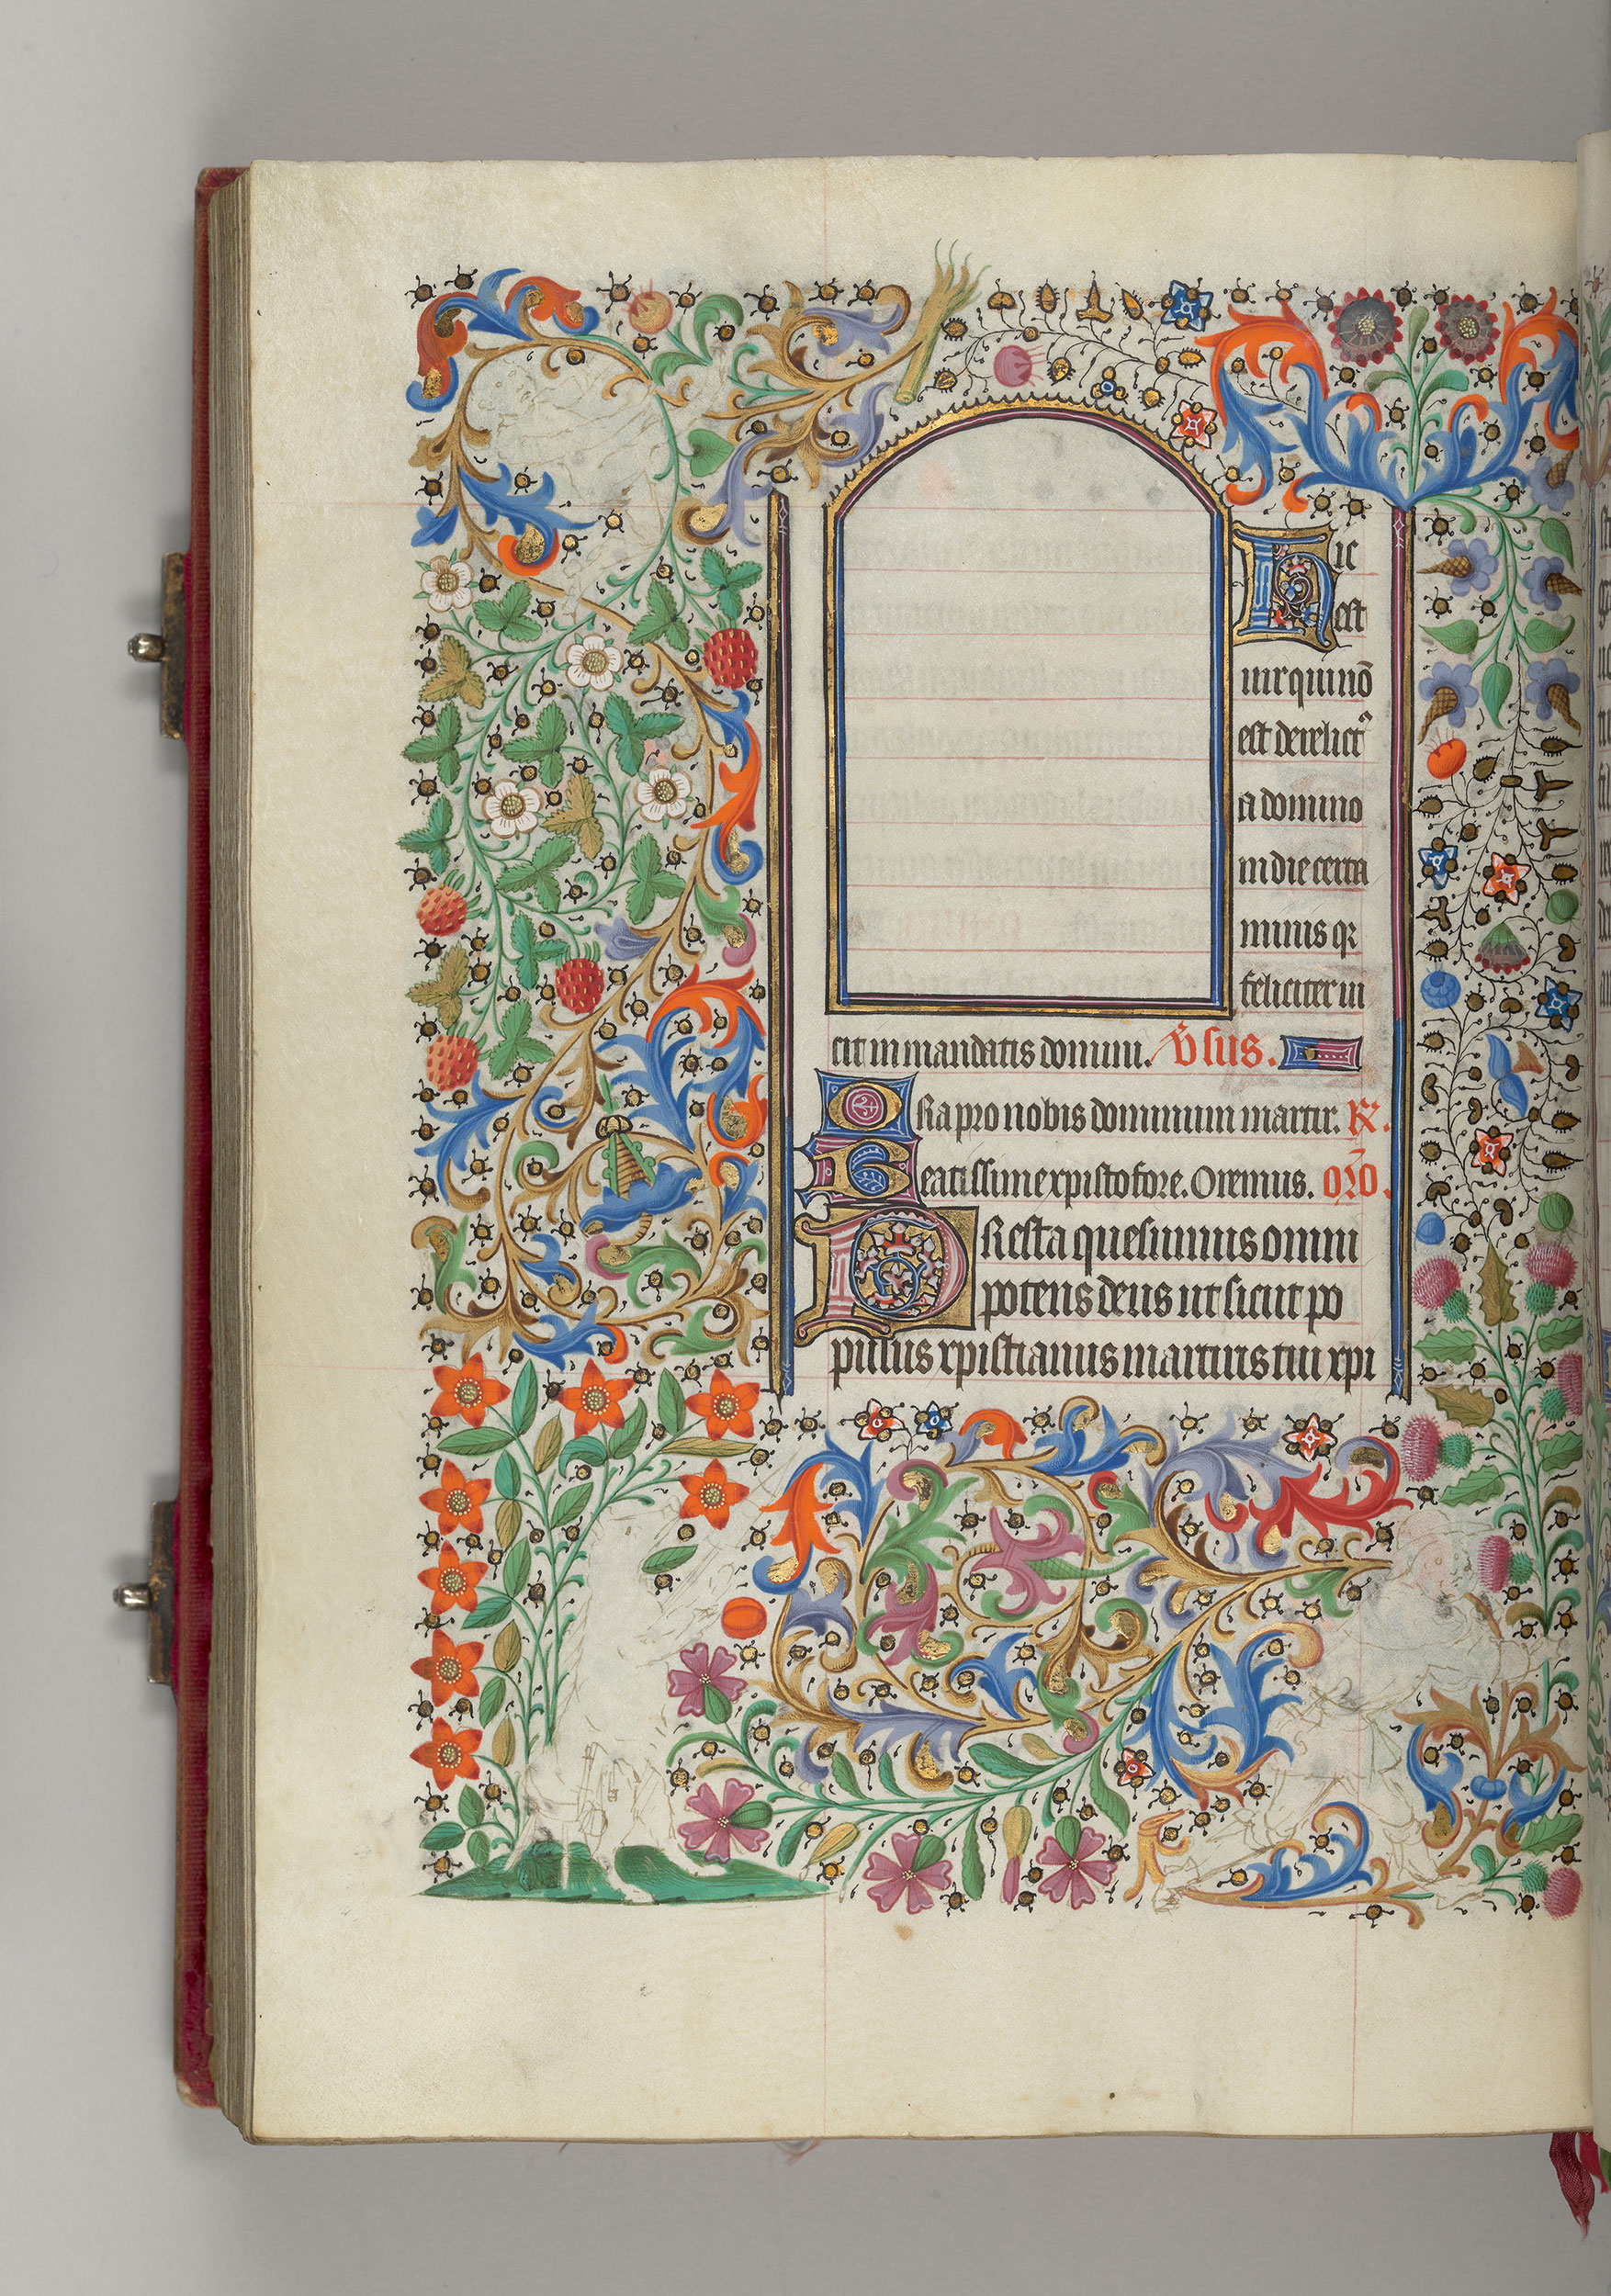 Hic
est
uir qui nō
est derelict᷒
a domino
in die certa
minis qꝛ
feliciter ui
cit in mandatis domini. V̄sus.
Ora pro nobis dominum martir. R̷.
Beatissime xpistofore. Oremus. or̄o.
Presta quesumus omni
potens deus ut sicut po
pulus xpistianus martiris tui xpi